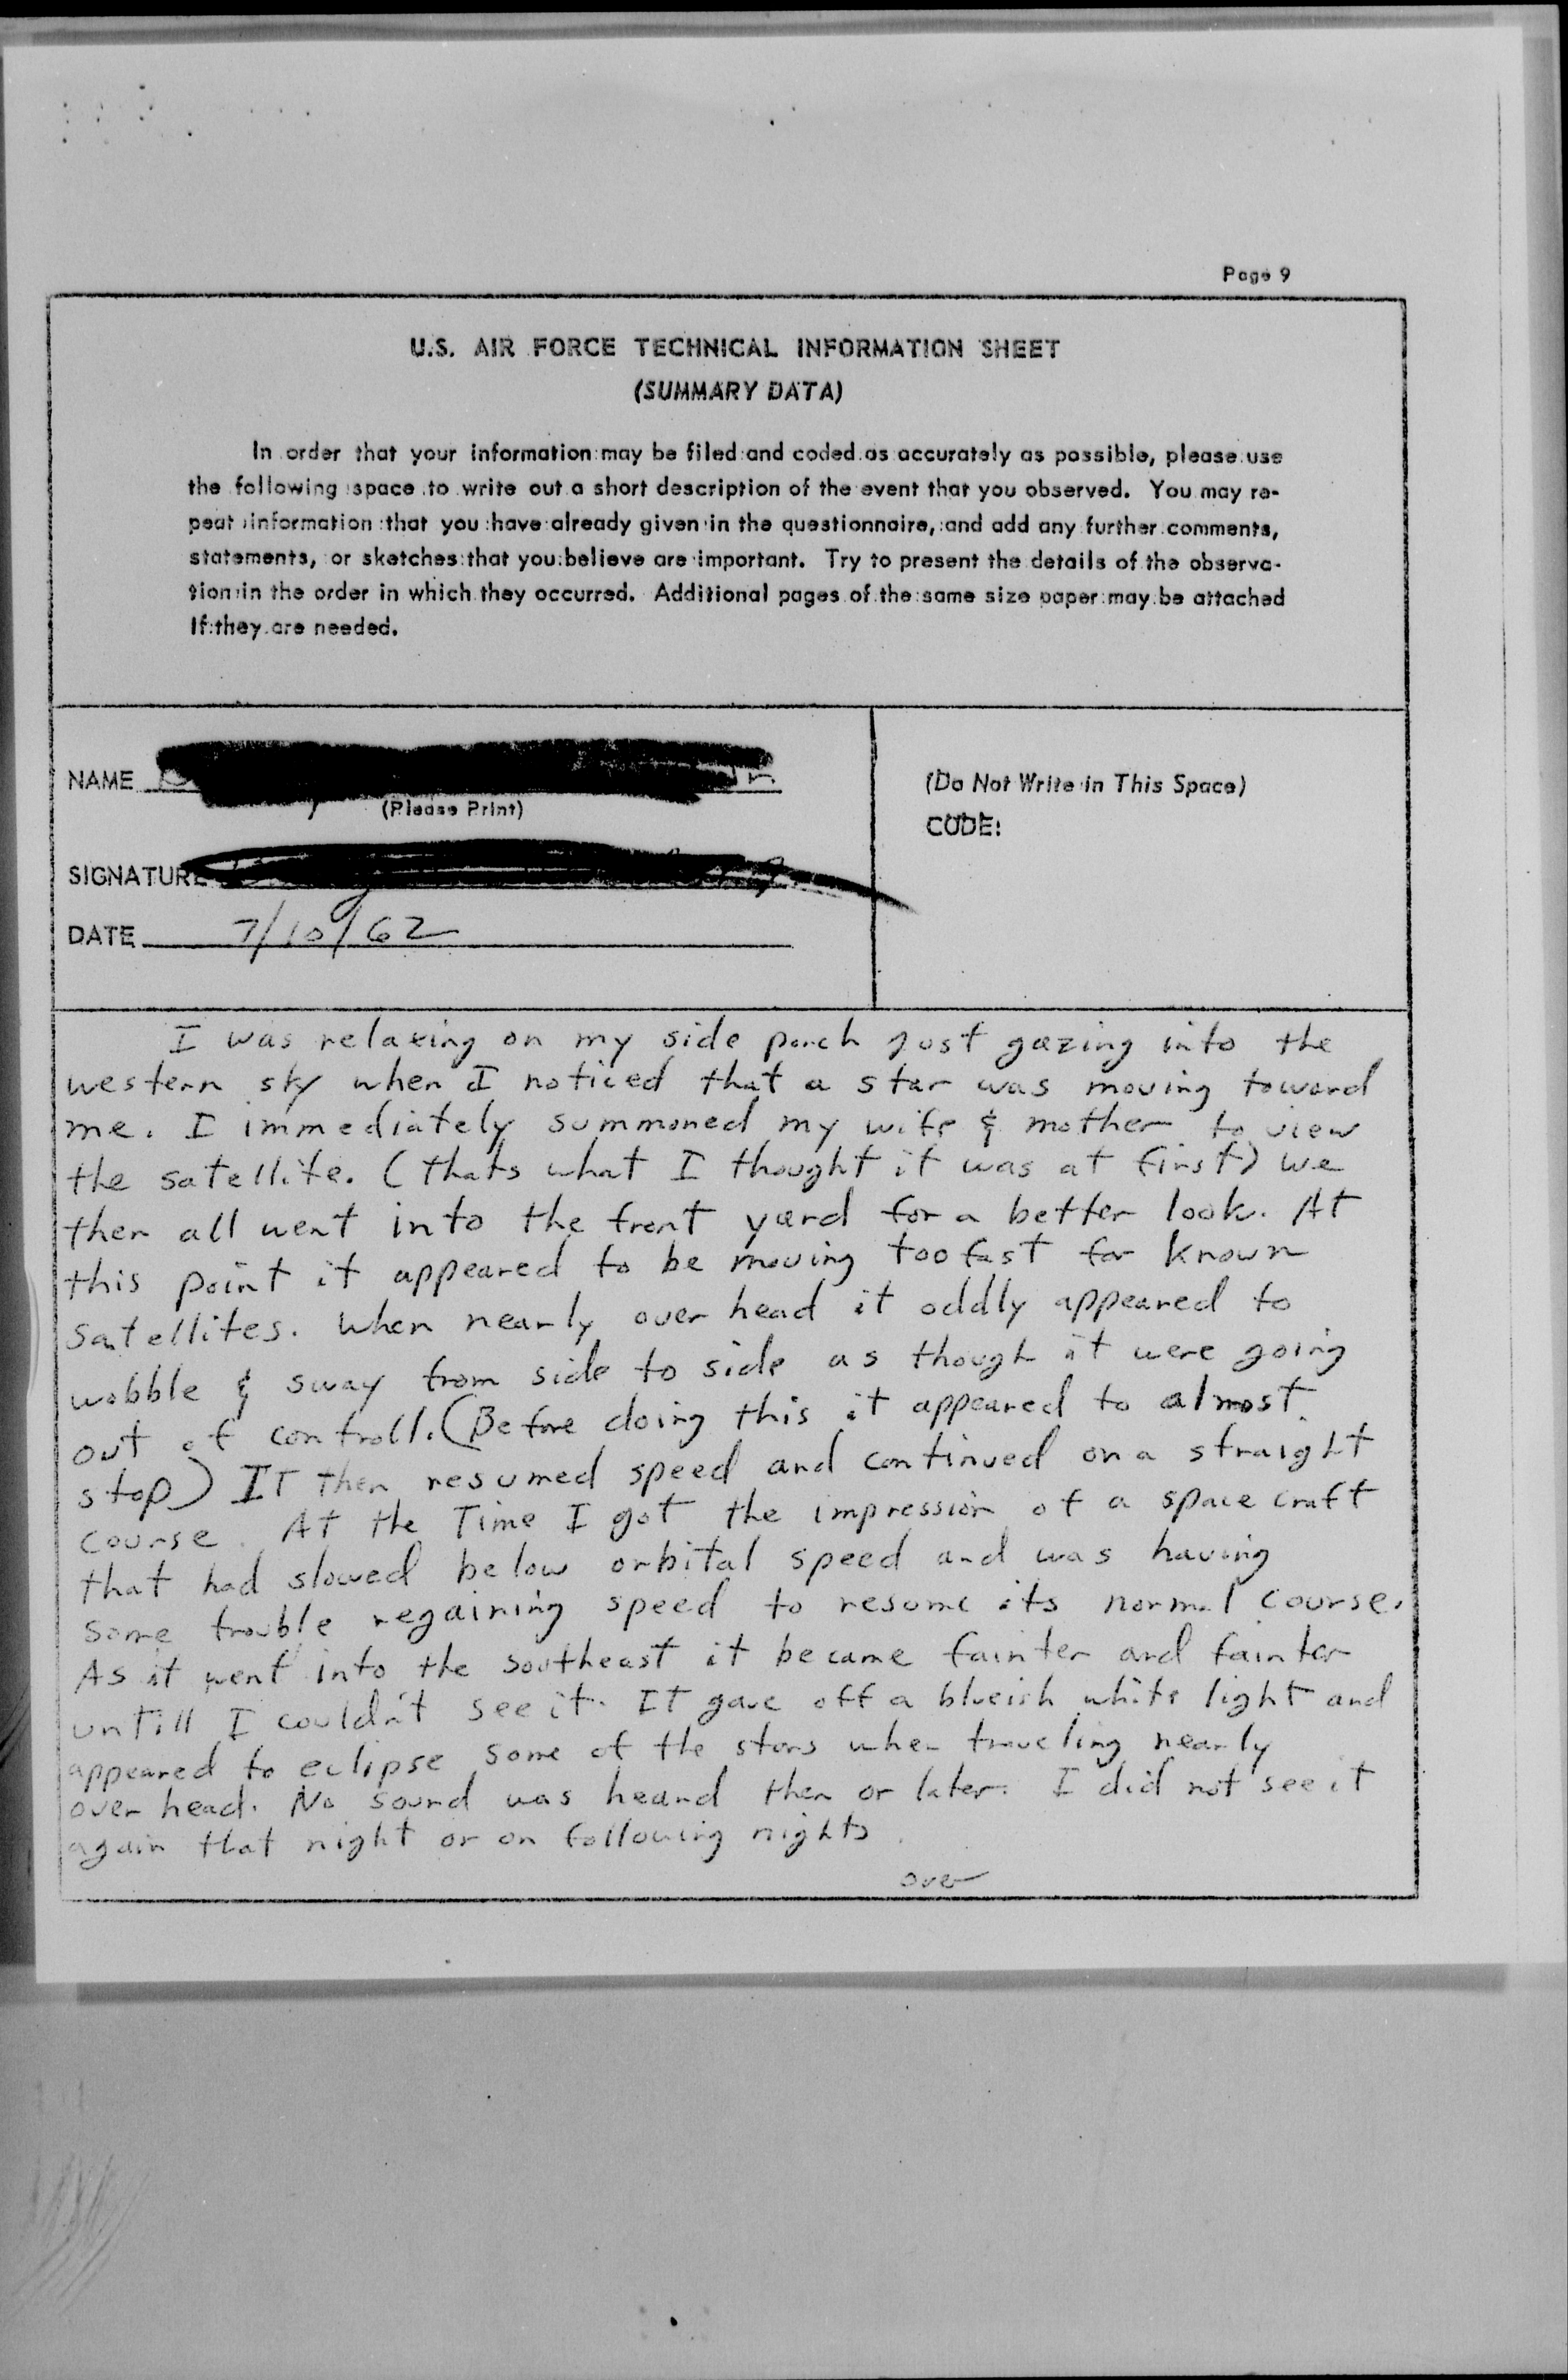 Page 9
U.S. AIR FORCE TECHNICAL INFORMATION SHEET
(SUMMARY DATA)
In order that your information may be filed and coded as accurately as possible, please use
the following space to write out a short description of the event that you observed. You may re-
peat information that you have already given in the questionnaire, and add any further comments,
statements, or sketches that you believe are important. Try to present the details of the observa-
tion in the order in which they occurred. Additional pages of the same size paper may be attached
if they are needed.
NAME
(Please Print)
SIGNATURE
DATE 7/10/62
(Do Not Write in This Space)
CODE:
I was relaxing on my side porch just gazing into the
western sky when I noticed that a star was moving toward
me. I immediately summoned my wife & mother to view
the satellite. (thats what I thought it was at first) we
then all went into the front yard for a better look. At
this point it appeared to be moving too fast for known
satellites. When nearly over head it oddly appeared to
wobble & sway from side to side as though it were going
out of controll. (Before doing this it appeared to almost
stop) IT then resumed speed and continued on a straight
course. At the Time I got the impression of a space craft
that had slowed below orbital speed and was having
some trouble regaining speed to resume its normal course.
As it went into the southeast it became fainter and fainter
untill I couldn't see it. IT gave off a blueish white light and
appeared to eclipse some of the stars when traveling nearly
over head. No sound was heard then or later. I did not see it
again that night or on following nights.
over